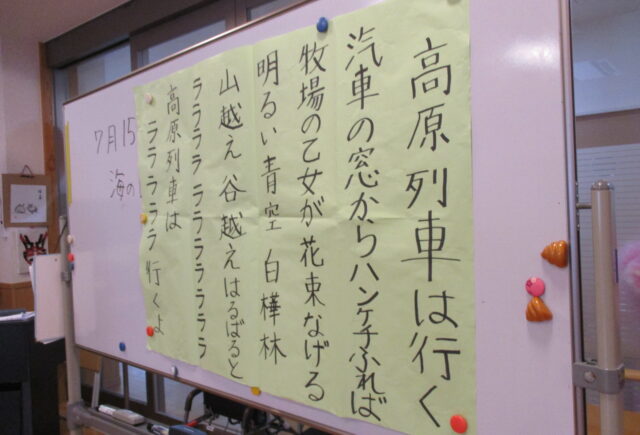 高原列車は行く
汽車の窓からハンケチふれば
牧場の乙女が花束なげる
明るい青空 白樺林
山越え 谷越えはるばると
ラララララ ララララララララ
高原列車は
ララララララ 行くよ
7月15
海の